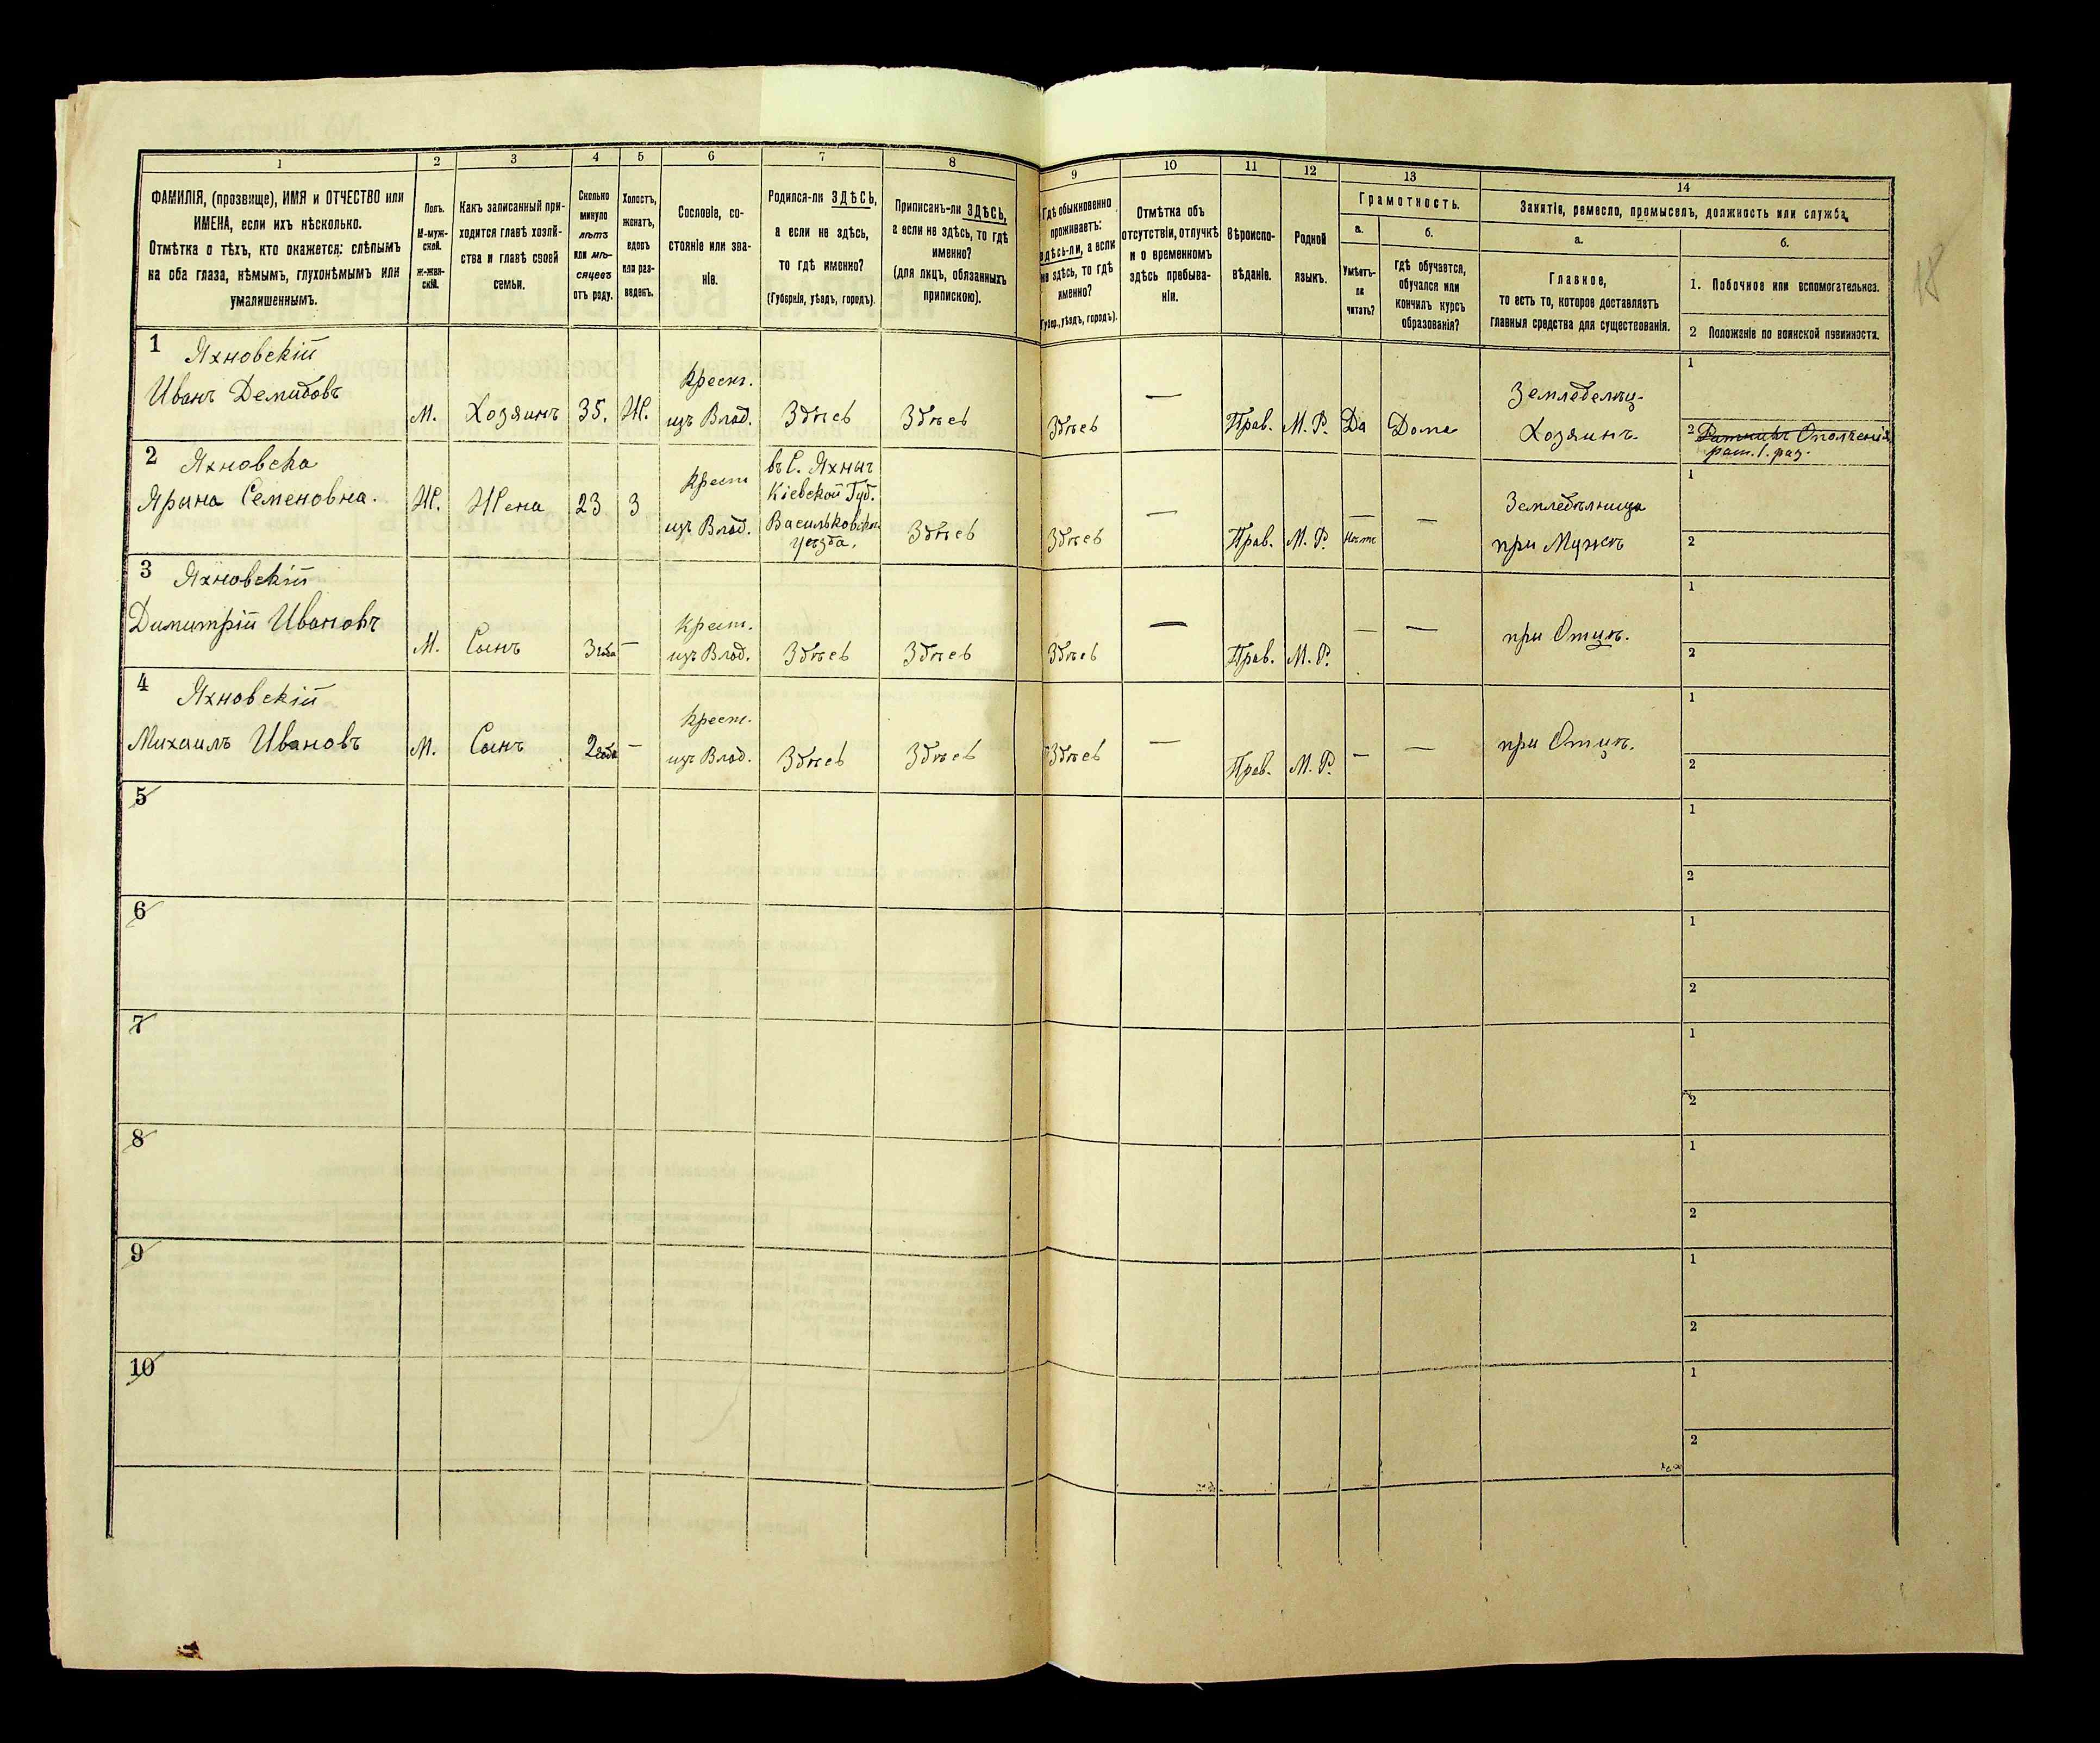 1
2
3
4
5
6
7
8
9
10
11
12
13
14
ФАМИЛІЯ, (прозвище), ИМЯ и ОТЧЕСТВО или
ИМЕНА, если ихъ нѣсколько.
Отмѣтка о тѣхъ, кто окажется: слѣпымъ
на оба глаза, нѣмымъ, глухонѣмымъ или
умалишеннымъ.
Полъ.
М-муж-
ской.
Ж-жен-
скій.
Какъ записанный при-
ходится главѣ хозяй-
ства и главѣ своей
семьи.
Сколько
минуло
лѣтъ
или мѣ-
сяцевъ
отъ роду.
Холостъ,
женатъ,
вдовъ
или раз-
веденъ.
Сословіе, со-
стояніе или зва-
ніе.
Родился-ли ЗДѢСЬ,
а если не здѣсь,
то гдѣ именно?
(Губернія, уѣздъ, городъ).
Приписанъ-ли ЗДѢСЬ,
а если не здѣсь, то гдѣ
именно?
(для лицъ, обязанныхъ
припискою).
Гдѣ обыкновенно
проживаетъ:
здѣсь-ли, а если
не здѣсь, то гдѣ
именно?
(Губер., уѣздъ, городъ).
Отмѣтка объ
отсутствіи, отлучкѣ
и о временномъ
здѣсь пребыва-
ніи.
Вѣроиспо-
вѣданіе.
Родной
языкъ.
Грамотность.
а.
Умѣетъ-
ли
читать?
б.
гдѣ обучается,
обучался или
кончилъ курсъ
образованія?
Занятіе, ремесло, промыселъ, должность или служба.
а.
Главное,
то есть то, которое доставляетъ
главныя средства для существованія.
б.
1. Побочное или вспомогательное.
2 Положеніе по воинской повинности.
18
1 Яхновскій
Иванъ Демидовъ
М.
Хозяинъ
35.
Ж.
Крест.
изъ Влад.
Здѣсь
Здѣсь
Здѣсь
—
Прав.
М. Р.
Да
Дома
Земледелец.
Хозяинъ.
1
2 Ратникъ Ополченія
рат. 1. раз.
2 Яхновска
Ярына Семеновна.
Ж.
Жена
23
З
Крест
изъ Влад.
въ С. Яхны
Кіевской Губ.
Васильковска
уезда.
Здѣсь
Здѣсь
—
Прав.
М. Р.
—
Нѣт
—
Земледѣлница
при Мужѣ
1
2
3 Яхновскій
Димитрій Ивановъ
М.
Сынъ
3 года
—
Крест.
изъ Влад.
Здѣсь
Здѣсь
Здѣсь
—
Прав.
М. Р.
—
—
при Отцѣ.
1
2
4 Яхновскій
Михаилъ Ивановъ
М.
Сынъ
2 года
—
Крест.
изъ Влад.
Здѣсь
Здѣсь
Здѣсь
—
Прав.
М. Р.
—
—
при Отцѣ.
1
2
5
1
2
6
1
2
7
1
2
8
1
2
9
1
2
10
1
2